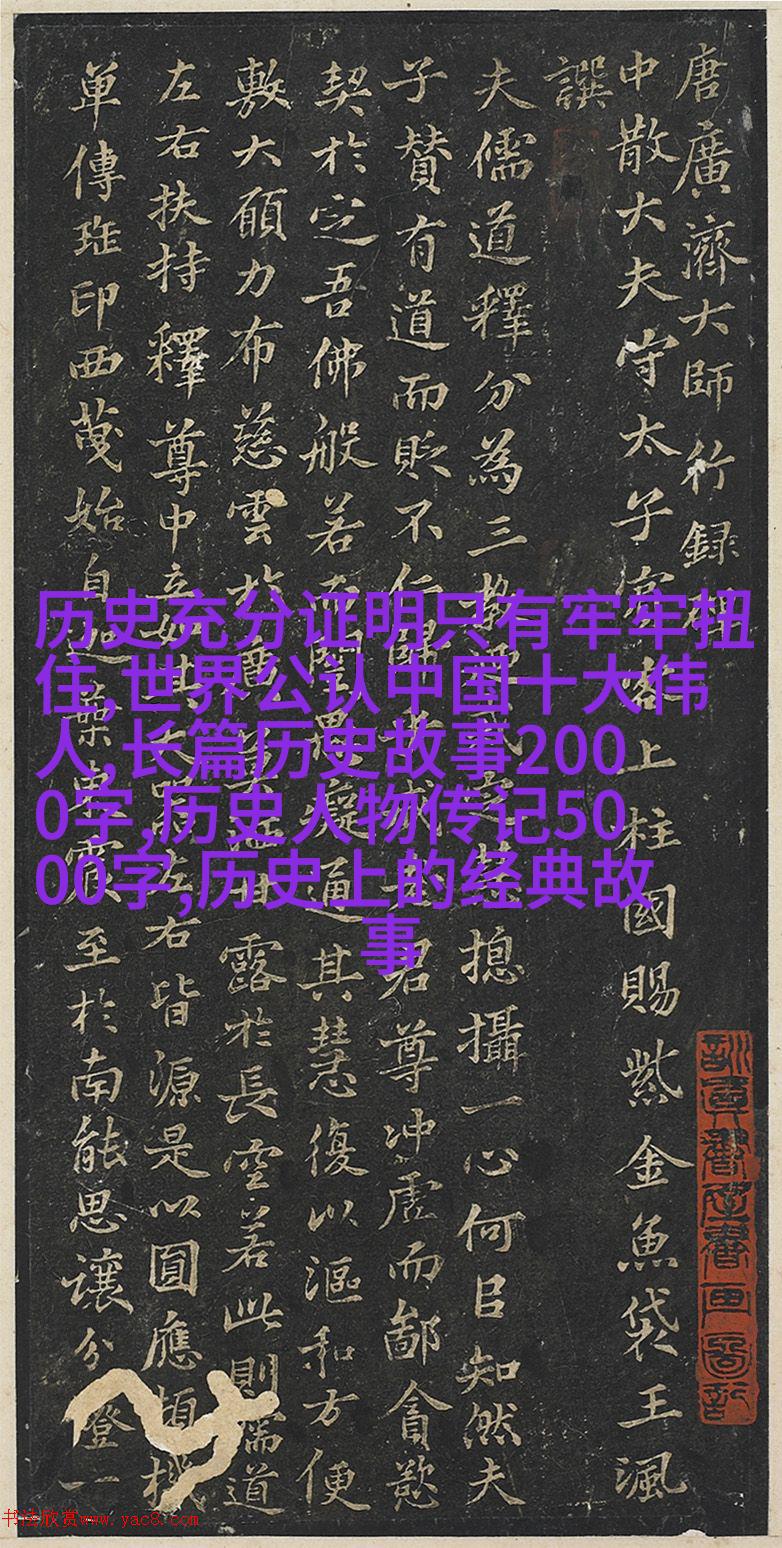 唐廣濟大師行録碑
中散大夫守太子賓客上柱國賜紫金魚袋王渢
譔
夫儒道釋分為三 摠攝一心何㠯知然夫
子賛有道而貶不仁 君尊冲虚而鄙貪慾
契於定吾佛般若 通其慧復以漚和方便
敷大願力布慈雲於 甘露於長空若此則儒道
左右扶持釋尊中立 左右皆源是以圓應頓機
單傳班印西蔑始自 至於南能思讓分燈一
历史充分证明只有牢牢扭
住,世界公认中国十大伟
人,长篇历史故事200
0字,历史人物传记50
00字,历史上的经典故
事
书法欣赏www.yac8.com